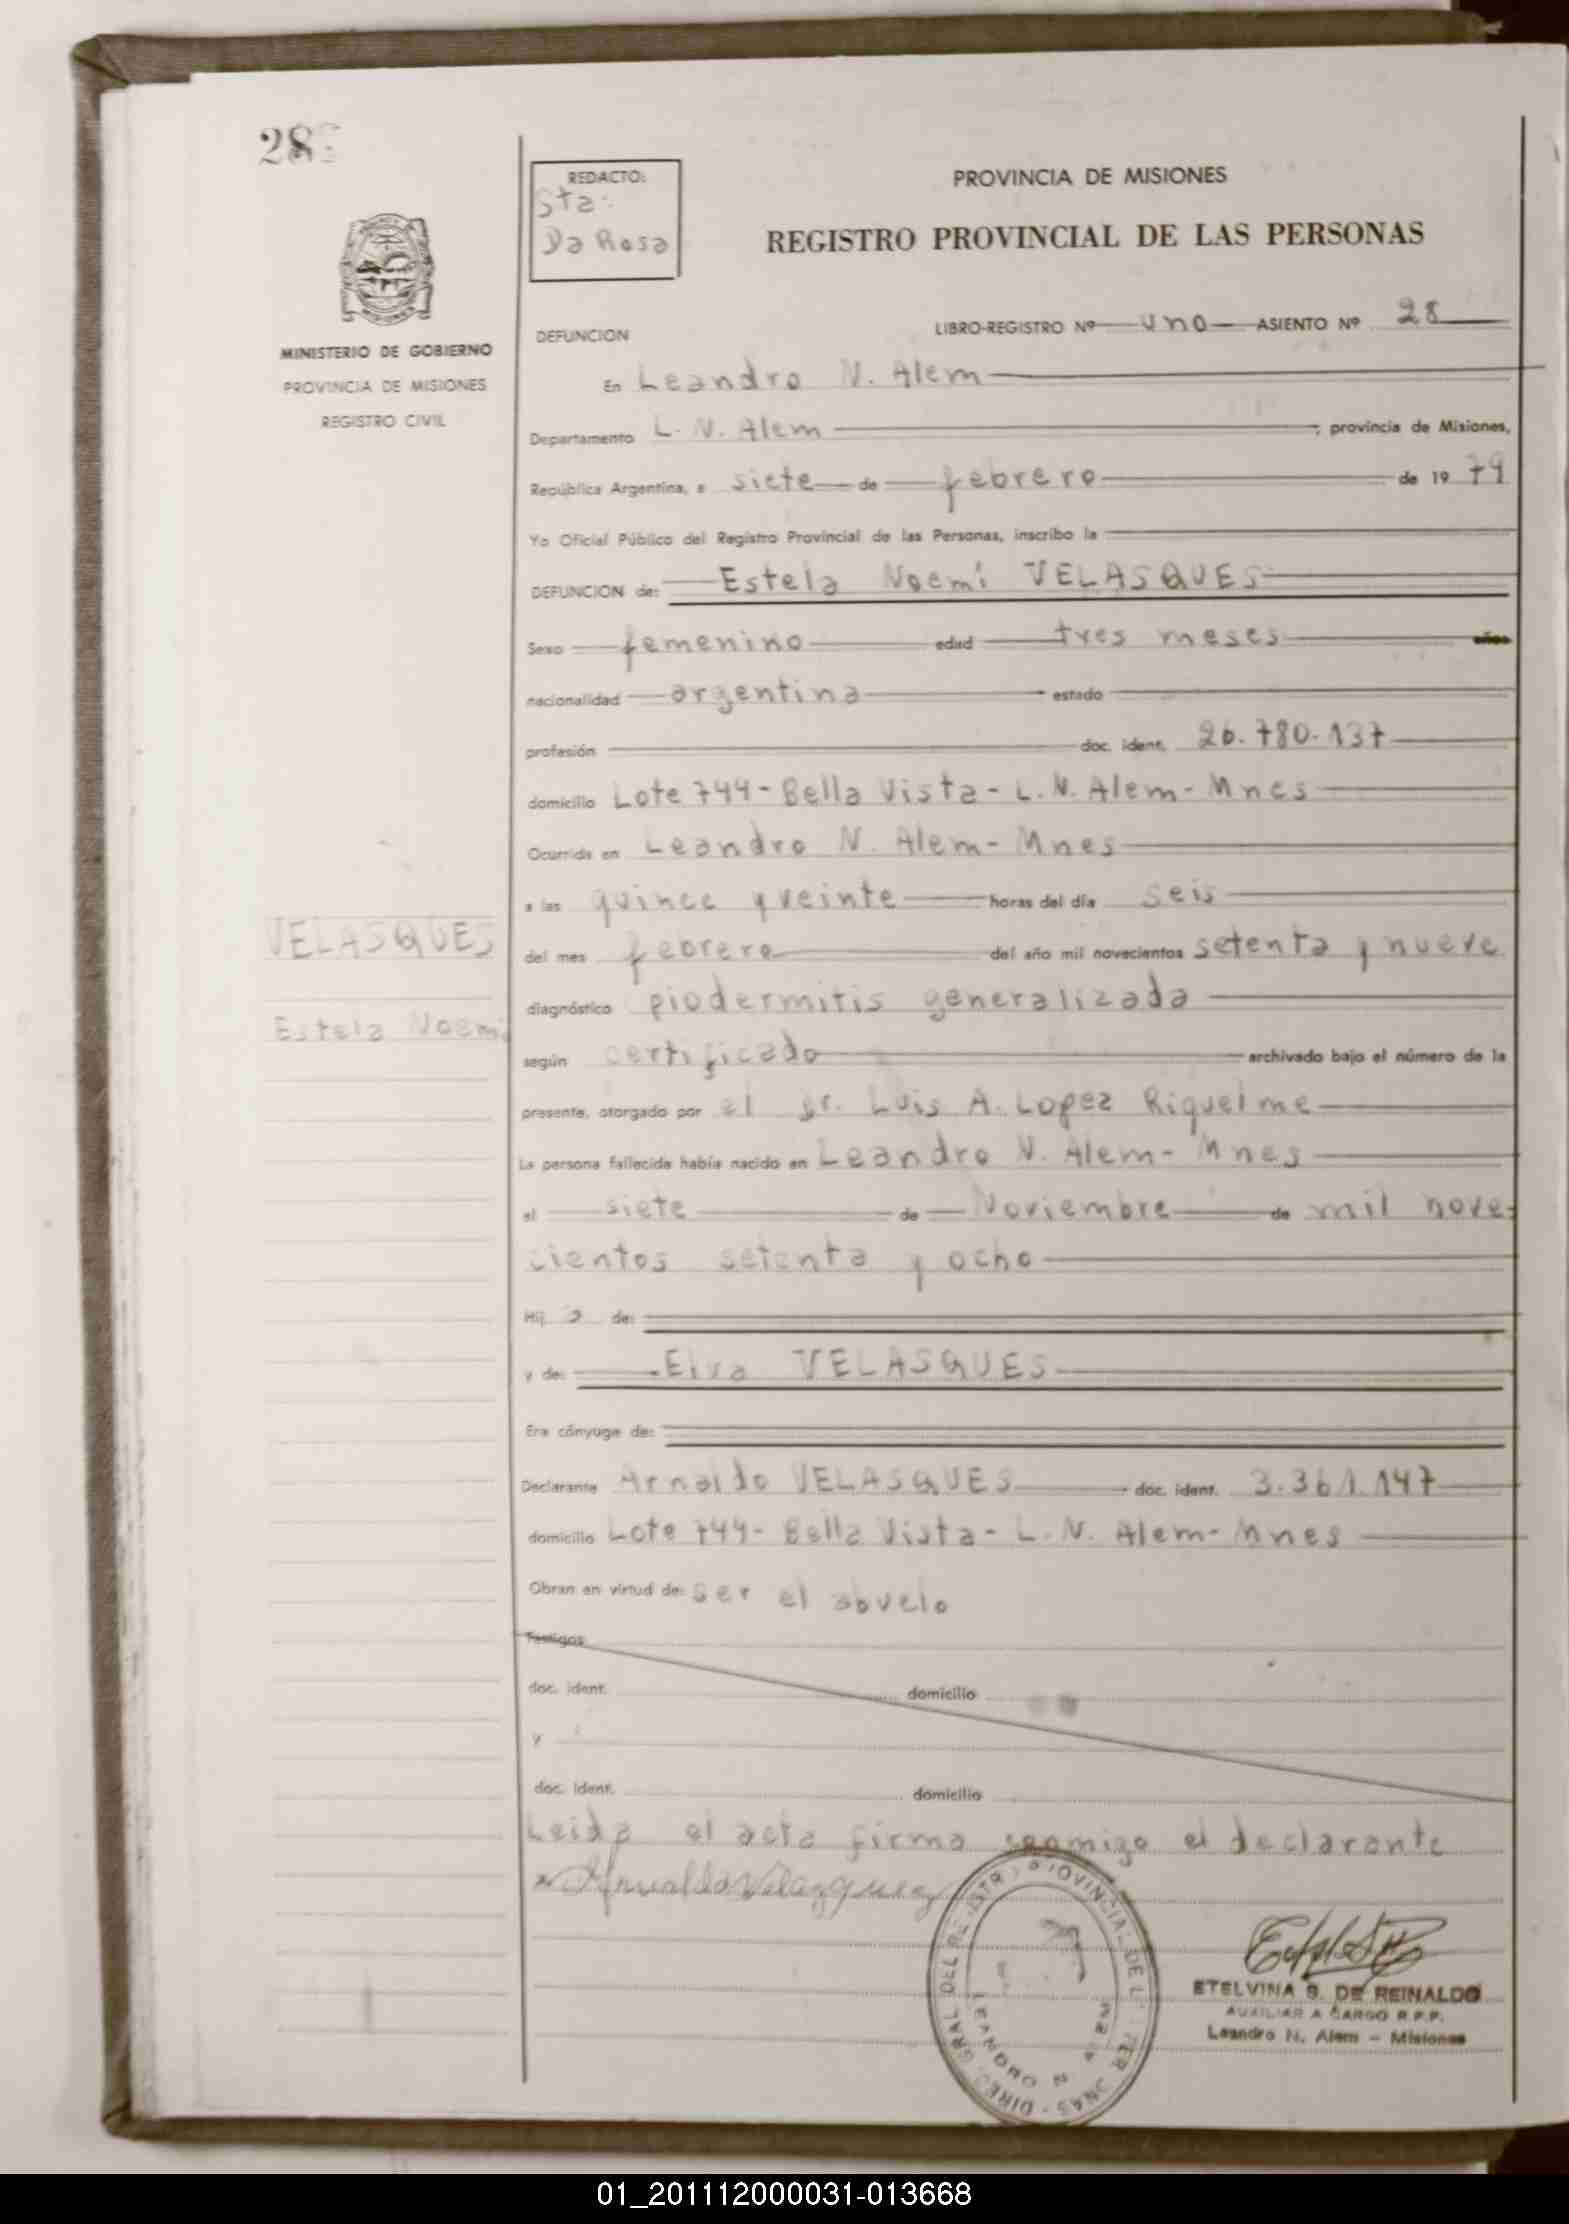 28
REDACTO:
Sta:
Da Rosa
PROVINCIA DE MISIONES
REGISTRO PROVINCIAL DE LAS PERSONAS
MINISTERIO DE GOBIERNO
PROVINCIA DE MISIONES
REGISTRO CIVIL
DEFUNCION
LIBRO-REGISTRO Nº uno ASIENTO Nº 28
En Leandro N. Alem
Departamento L. N. Alem , provincia de Misiones,
República Argentina, a siete de febrero de 19 79
Yo Oficial Público del Registro Provincial de las Personas, inscribo la
DEFUNCION de: Estela Noemí VELASQUES
Sexo femenino edad tres meses años
nacionalidad argentina estado
profesión doc. ident. 26.780.137
domicilio Lote 744- Bella Vista- L. N. Alem- Mnes
Ocurrida en Leandro N. Alem- Mnes
a las quince y veinte horas del día seis
del mes febrero del año mil novecientos setenta y nueve
diagnóstico piodermitis generalizada
según certificado archivado bajo el número de la
presente, otorgado por el Luis A. Lopez Riquelme
La persona fallecida había nacido en Leandro N. Alem- Mnes
el siete de Noviembre de mil nove-
cientos setenta y ocho
Hij a de:
y de: Elva VELASQUES
Era cónyuge de:
Declarante Arnaldo VELASQUES doc. ident. 3.361.147
domicilio Lote 744- Bella Vista- L. N. Alem- Mnes
Obran en virtud de: ser el abuelo
Testigos
doc. ident. domicilio
y
doc. ident. domicilio
Leida el acta firma conmigo el declarante
VELASQUES
Estela Noemi
ETELVINA S. DE REINALDO
AUXILIAR A CARGO R.P.P.
Leandro N. Alem - Misiones
01_201112000031-013668